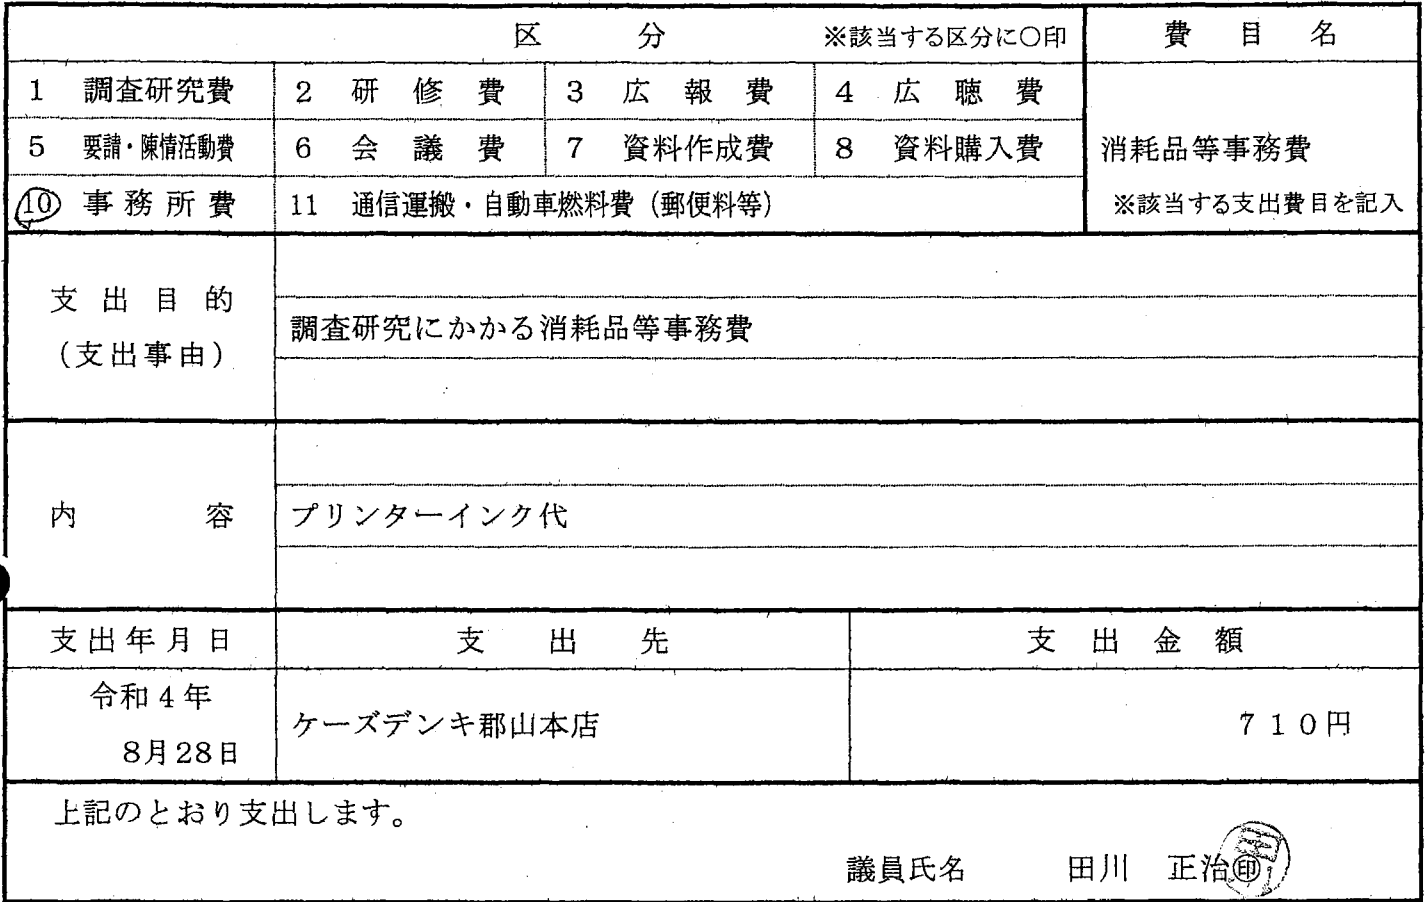 区 分 ※該当する区分に〇印 費 目 名
1 調査研究費 2 研 修 費 3 広 報 費 4 広 聴 費
5 要請・陳情活動費 6 会 議 費 7 資料作成費 8 資料購入費 消耗品等事務費
10 事務所費 11 通信運搬・自動車燃料費（郵便料等） ※該当する支出費目を記入
支 出 目 的
調査研究にかかる消耗品等事務費
（支出事由）
内 容 プリンターインク代
支出年月日 支 出 先 支 出 金 額
令和4年
ケーズデンキ郡山本店 710円
8月28日
上記のとおり支出します。
議員氏名 田川 正治㊞